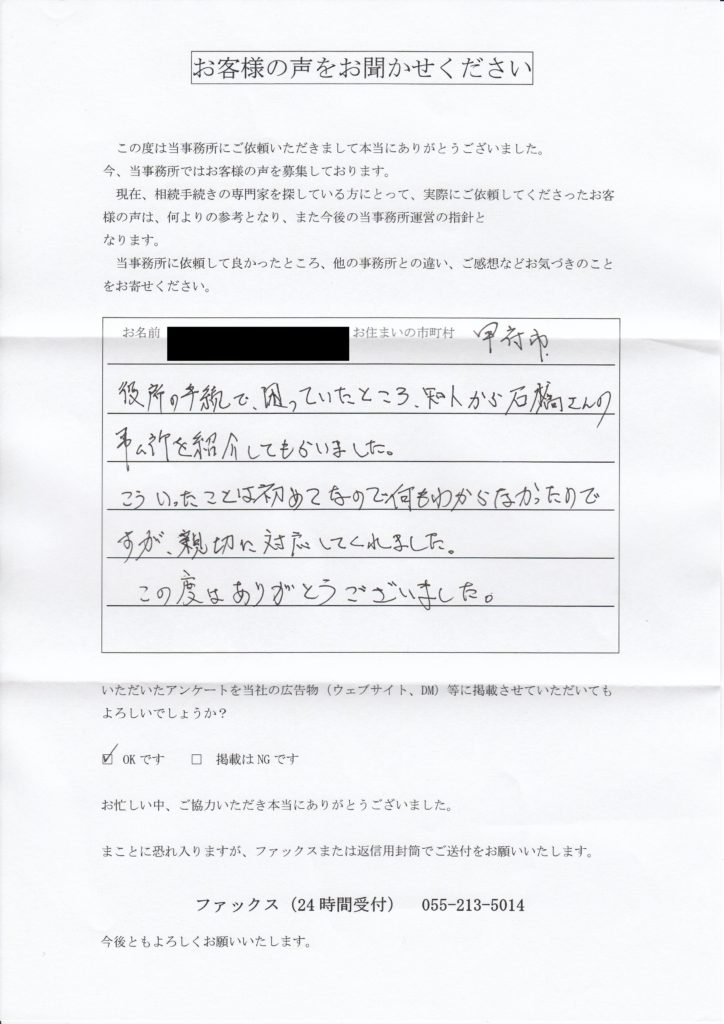 お客様の声をお聞かせください
この度は当事務所にご依頼いただきまして本当にありがとうございました。
今、当事務所ではお客様の声を募集しております。
現在、相続手続きの専門家を探している方にとって、実際にご依頼してくださったお客
様の声は、何よりの参考となり、また今後の当事務所運営の指針と
なります。
当事務所に依頼して良かったところ、他の事務所との違い、ご感想などお気づきのこと
をお寄せください。
お名前 お住まいの市町村 甲府市
役所の手続で、困っていたところ、知人から石橋さんの
事ム所を紹介してもらいました。
こういったことは初めてなので何もわからなかったので
すが、親切に対応してくれました。
この度はありがとうございました。
いただいたアンケートを当社の広告物（ウェブサイト、DM）等に掲載させていただいても
よろしいでしょうか？
☑ OKです □ 掲載はNGです
お忙しい中、ご協力いただき本当にありがとうございました。
まことに恐れ入りますが、ファックスまたは返信用封筒でご送付をお願いいたします。
ファックス（24時間受付） 055-213-5014
今後ともよろしくお願いいたします。